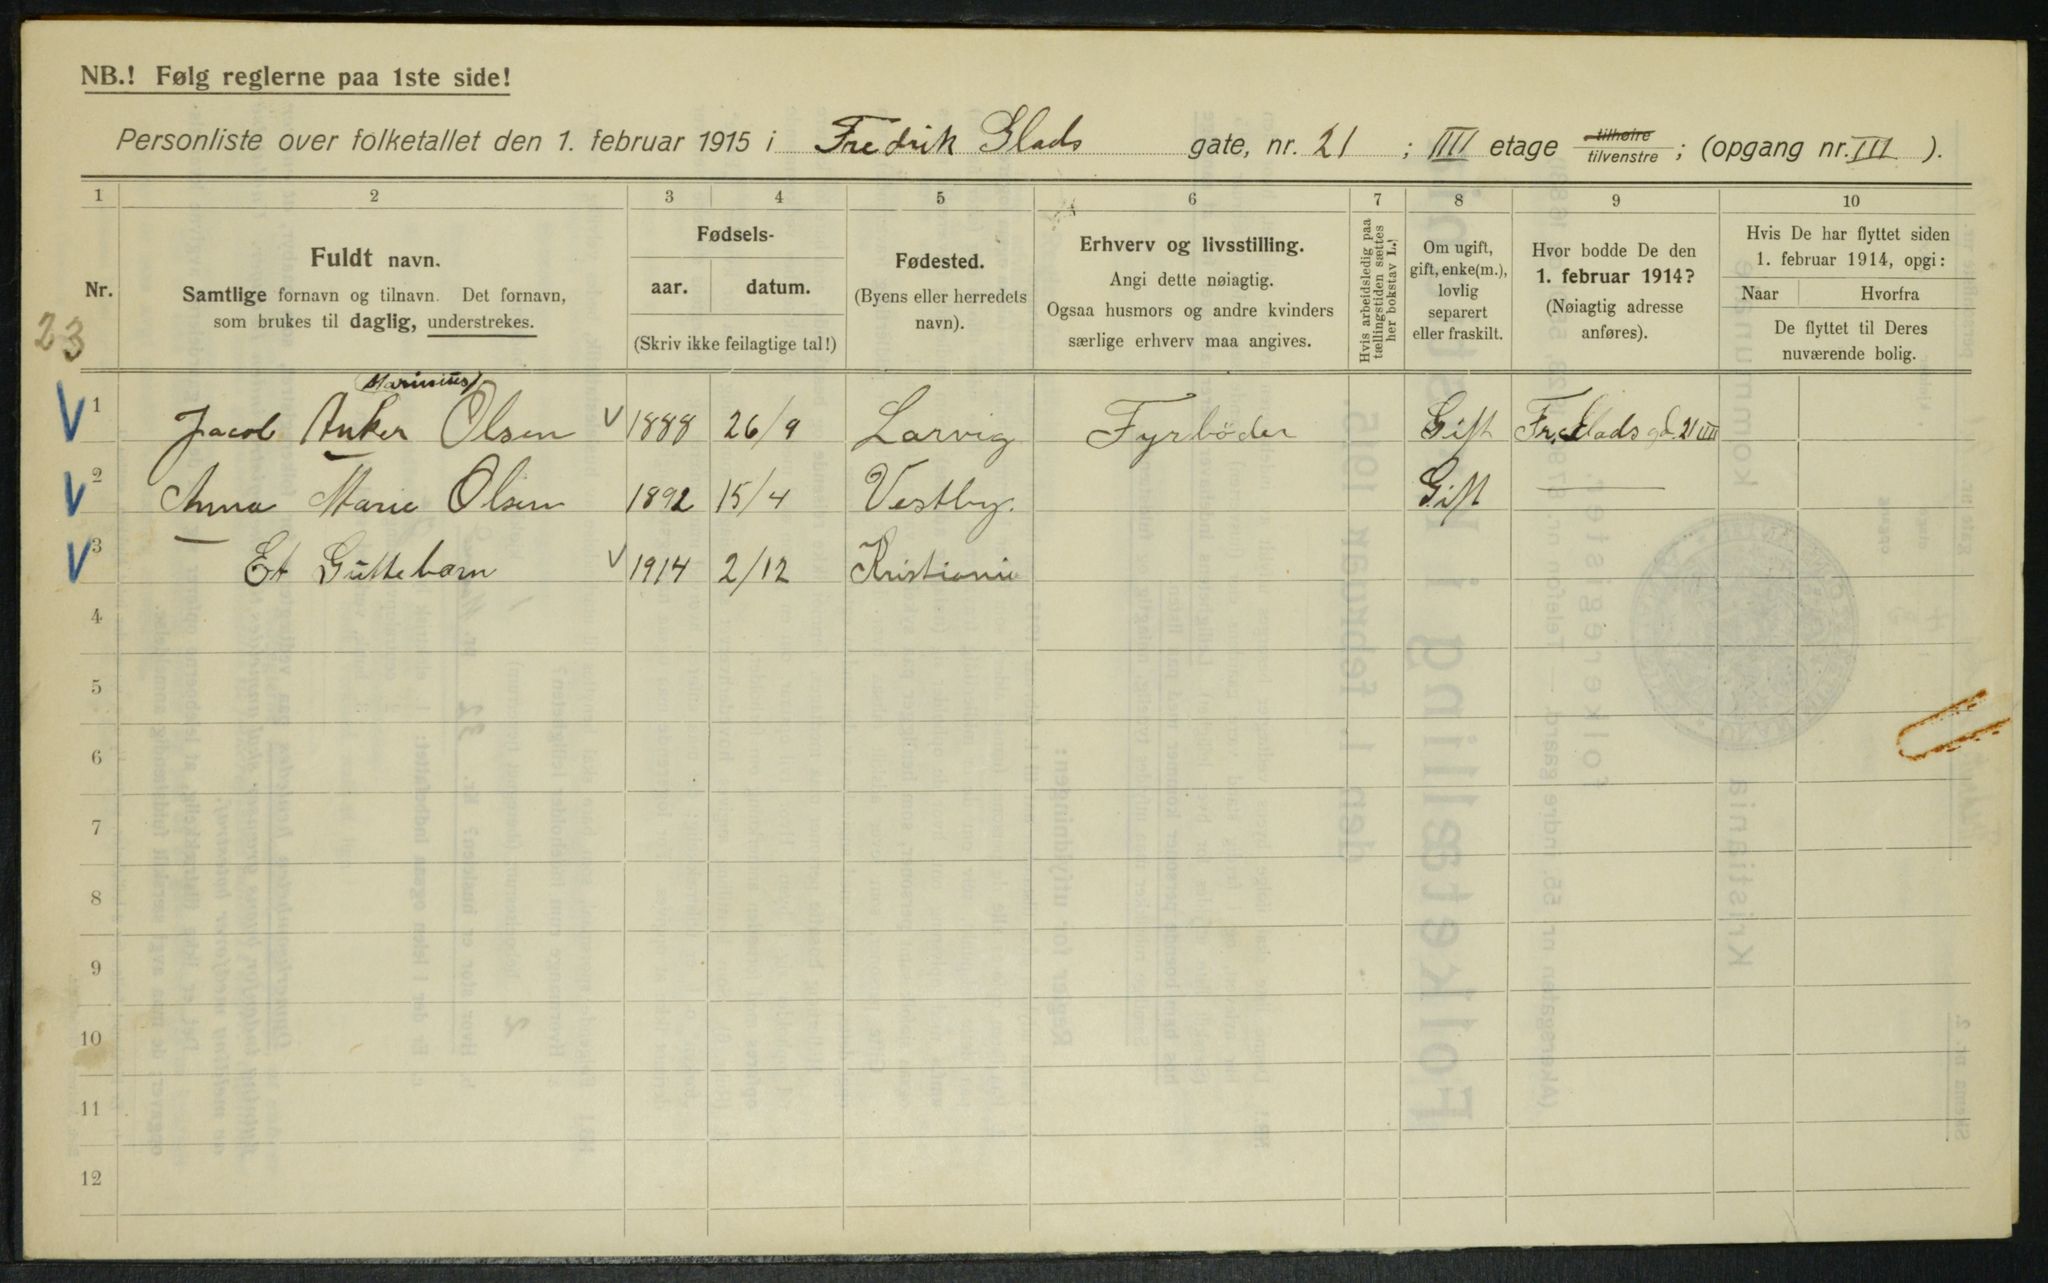 NB.! Følg reglerne paa 1ste side!
Personliste over folketallet den 1. februar 1915 i Fredrik Glads gate, nr. 21 ; III etage tilhøire tilvenstre ; (opgang nr. III ).
1 2 3 4 5 6 7 8 9 10
Nr.
Fuldt navn.
Samtlige fornavn og tilnavn. Det fornavn,
som brukes til daglig, understrekes.
Fødsels-
aar. datum.
(Skriv ikke feilagtige tal!)
Fødested.
(Byens eller herredets
navn).
Erhverv og livsstilling.
Angi dette nøiagtig.
Ogsaa husmors og andre kvinders
særlige erhverv maa angives.
Hvis arbeidsledig paa
tællingstiden sættes
her bokstav L.!
Om ugift,
gift, enke(m.),
lovlig
separert
eller fraskilt.
Hvor bodde De den
1. februar 1914?
(Nøiagtig adresse
anføres).
Hvis De har flyttet siden
1. februar 1914, opgi:
Naar Hvorfra
De flyttet til Deres
nuværende bolig.
23
Marinius
V 1 Jacob Anker Olsen V 1888 26/9 Larvig Fyrböder Gift Fr. Glads gd. 21 III
V 2 Anna Marie Olsen 1892 15/4 Vestby. Gift —
V 3 Et Guttebarn V 1914 2/12 Kristiania
4
5
6
7
8
9
10
11
12